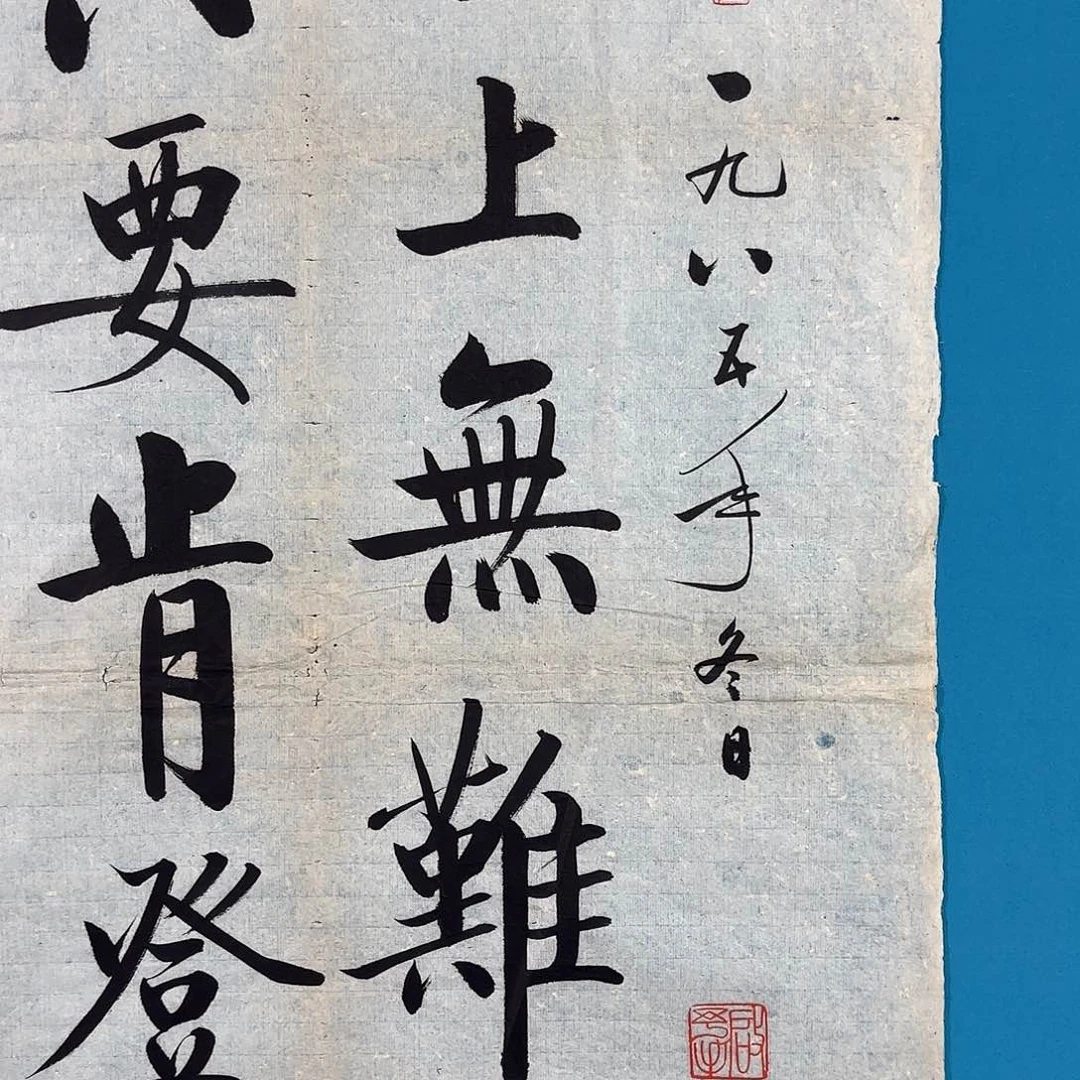 一九八五年冬日
上無難
要肯登